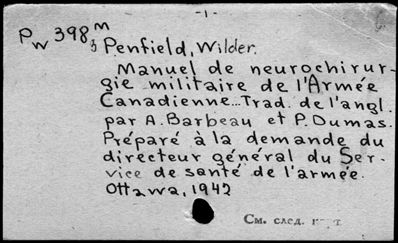 -1-
Pw 398 m
3
Penfield, Wilder.
Manuel de neurochirur-
gie militaire de l'Armée
Canadienne...Trad. de l'angl.
par A. Barbeau et P. Dumas.
Préparé à la demande du
directeur général du Ser-
vice de santé de l'armée.
Ottawa, 1942
См. след.